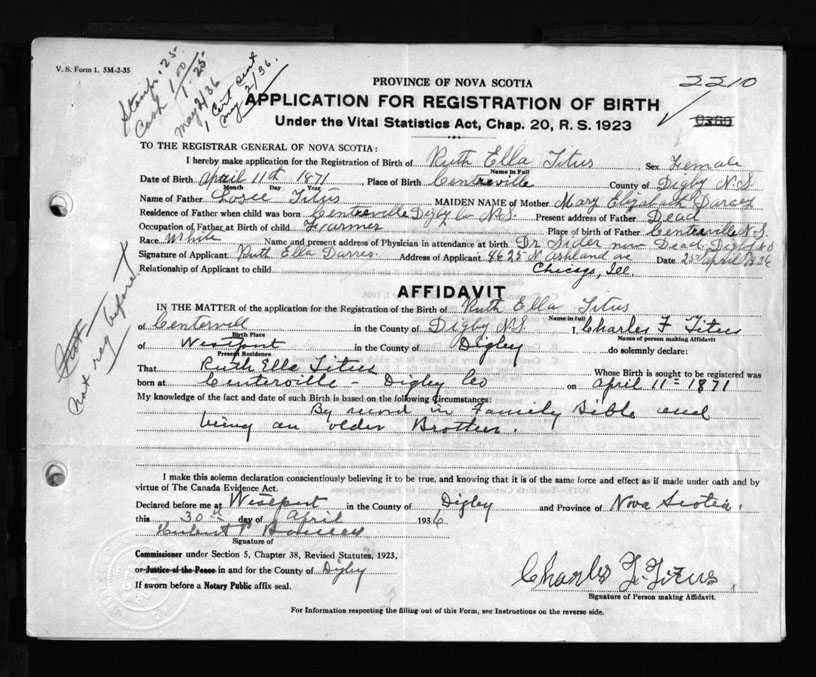 V. S. Form 1. 5M-2-35
Stamp .25
Cash 1.00
1.25
May 2/36
1 Cert sent
May 2/36
2210
PROVINCE OF NOVA SCOTIA
APPLICATION FOR REGISTRATION OF BIRTH
Under the Vital Statistics Act, Chap. 20, R. S. 1923
TO THE REGISTRAR GENERAL OF NOVA SCOTIA:
I hereby make application for the Registration of Birth of Ruth Ella Titus Sex Female
Name in Full
Date of Birth April 11th 1871, Place of Birth Centreville County of Digby N.S.
Month Day Year
Name of Father Losee Titus MAIDEN NAME of Mother Mary Elizabeth Darcey
Residence of Father when child was born Centreville Digby Co N.S. Present address of Father Dead
Occupation of Father at Birth of child Frarmer Place of birth of Father Centreville N.S.
Race White Name and present address of Physician in attendance at birth Dr now Dead. Digby N.S
Signature of Applicant Ruth Ella Darres Address of Applicant 8625 S. Ashland ave Date 25 April 1936
Relationship of Applicant to child Chicago, Ill.
AFFIDAVIT
IN THE MATTER of the application for the Registration of the Birth of Ruth Ella Titus
Name in full
of Centervill in the County of Digby N.S. I, Charles F Titus
Birth Place Name of person making Affidavit
of Westport in the County of Digby do solemnly declare:
Present Residence
That Ruth Ella Titus Whose Birth is sought to be registered was
born at Centerville - Digby Co on April 11 = 1871
My knowledge of the fact and date of such Birth is based on the following Circumstances:
By record in Family Bible and
being an older Brother.
not reg before
I make this solemn declaration conscientiously believing it to be true, and knowing that it is of the same force and effect as if made under oath and by
virtue of The Canada Evidence Act.
Declared before me at Westport in the County of Digby and Province of Nova Scotia.
this 30th day of April 1936
Signature of
Commissioner under Section 5, Chapter 38, Revised Statutes, 1923,
or Justice of the Peace in and for the County of Digby
If sworn before a Notary Public affix seal.
Charles F. Titus
Signature of Person making Affidavit.
For Information respecting the filling out of this Form, see Instructions on the reverse side.